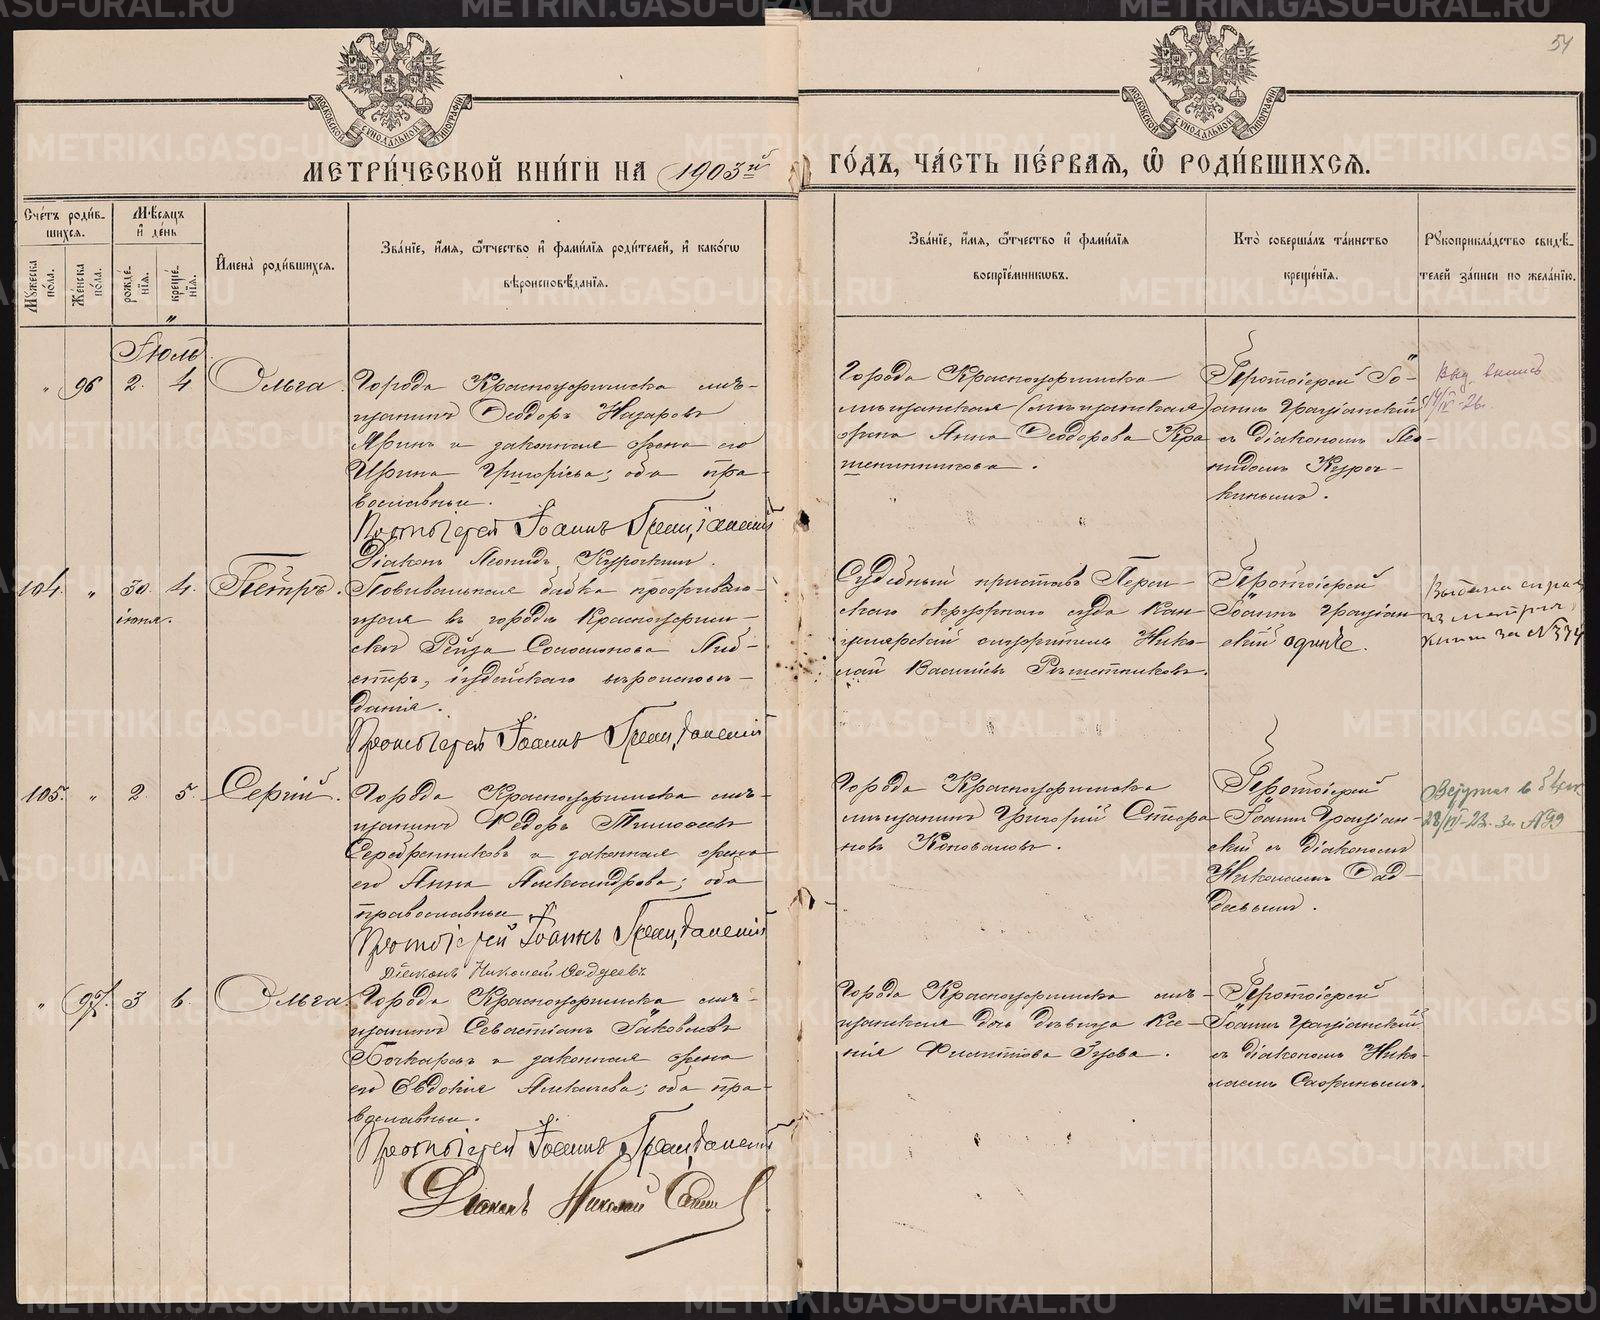 54
МОСКОВСКОЙ СѴНОДАЛЬНОЙ ТИПОГРАФІИ
МОСКОВСКОЙ СѴНОДАЛЬНОЙ ТИПОГРАФІИ
МЕТРИ́ЧЕСКОЙ КНИ́ГИ НА 1903й ГО́ДЪ, ЧА́СТЬ ПЕ́РВАѦ, Ѿ РОДИ́ВШИХСѦ.
Сче́тъ роди́в-
шихсѧ.
Мꙋ́жеска по́ла.
Же́нска по́ла.
Мѣ́сѧцъ и҆ де́нь
рожде́нїѧ.
креще́нїѧ.
И҆мена̀ роди́вшихсѧ.
Зва́нїе, и҆́мѧ, ѻ҆́тчество и҆ фами́лїѧ роди́телей, и҆ како́гѡ
вѣроисповѣ́данїѧ.
Зва́нїе, и҆́мѧ, ѻ҆́тчество и҆ фами́лїѧ
воспрїе́мникѡвъ.
Кто̀ соверша́лъ та́инство
креще́нїѧ.
Рꙋкоприкла́дство свидѣ́-
телей за́писи по жела́нїю.
Іюль
" 96 2. 4 Ольга.
Города Красноуфимска мѣ-
щанинъ Ѳеодоръ Назаровъ
Яринъ и законная жена его
Ирина Григорьева; оба пра-
вославные.
Протоіерей Іоаннъ Граціанскій
Діаконъ Леонидъ Курочкин.
Города Красноуфимска
мѣщанская (мѣщанская)
жена Анна Ѳеодорова Кра
шенинникова.
Протоіерей Іо-
аннъ Граціанскій
съ діакономъ Лео-
нидомъ Куроч-
кинымъ.
Выд. выпись
14/IV-26.
104. " 30. іюня. 4. Петръ.
Повивальная бабка проживаю-
щая въ городѣ Красноуфим-
скѣ Рейза Соломонова Либ-
стеръ, іудейскаго вѣроисповѣ-
данія.
Протоіерей Іоаннъ Граціанскій
Судебный приставъ Перм-
скаго окружнаго суда Кан-
целярскій служитель Нико-
лай Васильевъ Рѣшетниковъ.
Протоіерей
Іоаннъ Граціан-
скій одинъ.
Выдана справ
из метрич.
книги за № 374
105. " 2. 5. Сергій.
Города Красноуфимска мѣ-
щанинъ Ѳедоръ Тимоѳеевъ
Серебренниковъ и законная жена
его Анна Александрова; оба
православные
Протоіерей Іоаннъ Граціанскій
Діаконъ Николай Авдуевъ
Города Красноуфимска
мѣщанинъ Григорій Степа
новъ Коноваловъ.
Протоіерей
Іоаннъ Граціан-
скій съ діакономъ
Николаемъ
28/IV-23. за №99
" 97. 3 6. Ольга.
Города Красноуфимска мѣ-
щанинъ Севастіанъ Іаковлевъ
Бочкаревъ и законная жена
его Евдокія Алексѣева; оба пра-
вославные.
Протоіерей Іоаннъ Граціанскій
Діаконъ Николай
Города Красноуфимска мѣ-
щанская дочь дѣвица Ксе-
нія Филиппова Гусева.
Протоіерей
Іоаннъ Граціанскій
съ діакономъ Нико-
лаемъ
METRIKI.GASO-URAL.RU